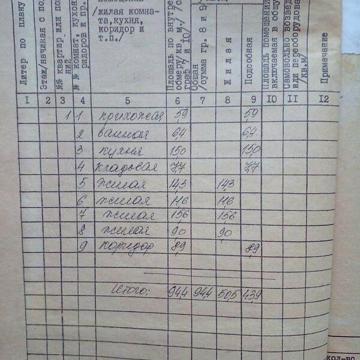 Литер по плану
Этаж/начиная с по
№№ квартир или по
№№ комнат, кухон
ридоров
/жилая комна-
та,кухня,
коридор и
т.п./
Общая
/сумма гр. 8 и 9/
Жилая
Подсобная
Площадь помещения
включаемая в общую
Самовольно возведе
или переоборудова
/кв.м/
Примечание
I 2 3 4 5 6 7 8 9 10 II I2
1 1 прихожая 59 59
2 ванная 64 64
3 кухня 150 150
4 кладовая 77 77
5 жилая 143 143
6 жилая 116 116
7 жилая 156 156
8 жилая 90 90
9 коридор 89 89
Итого: 944 944 505 439
кол-во